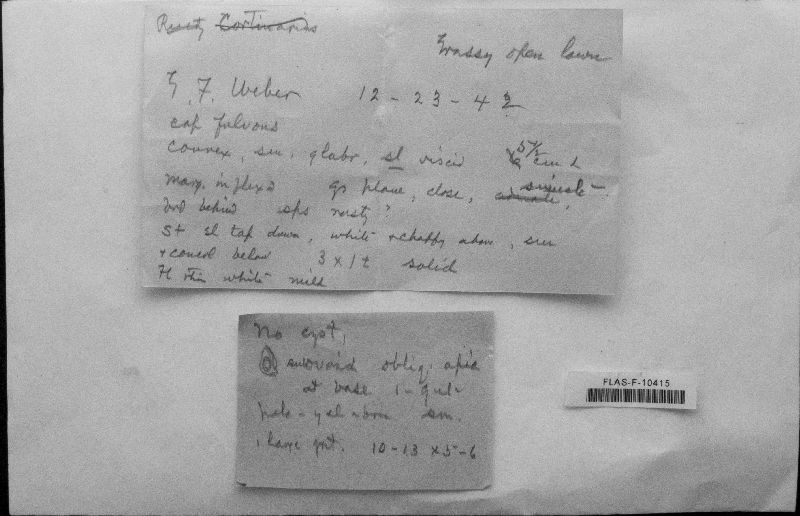 Rusty Cortinarius
Grassy open lawn
G. F. Weber 12-23-42
cap fulvous
convex, sm, glabr, sl viscid 5½ cm d
marg. inflexd gs plane, close, sinuate
brd behind sps rusty?
St sl tap down, white + chaffy above, sm
+ concol below 3 x 1 ½ solid
Fl thin white mild
No cyst,
subovoid obliq. apic
at base 1-gutt
pale-yel-brn sm.
1 large gut. 10-13 x 5-6
FLAS-F-10415